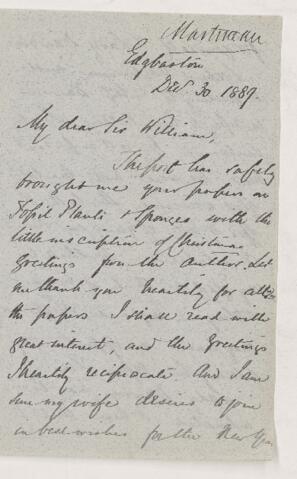 Edgbaston
Dec. 30 1889.
My dear Sir William,
The post has safely
brought me your papers on
Fossil Plants & Sponges with the
little inscription of Christmas
Greetings from the author. Let
me thank you heartily for all
the papers I shall read with
great interest, and the greetings
I heartily reciprocate. And I am
sure my wife desires to join
in best wishes for the New Year